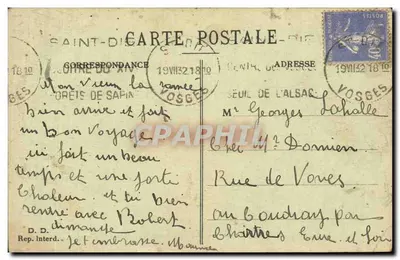 SAINT-DIÉ
CARTE POSTALE
CORRESPONDANCE
ADRESSE
19 VII 32 18 10
VOSGES
19 VII 32 18 10
VOSGES
FORETS DE SAPIN
SEUIL DE L'ALSACE
Mon Vieux la
bien arrivé et fait
un bon Voyage
ici fait un beau
temps et une forte
Chaleur. et tu bien
rentré avec Robert
dimanche
Je t'embrasse Maurice
Mr Georges Lahalle
Chez Mr Domien
Rue de Voves
au Coudray par
Chartres Eure et Loir
D. D.
Rep. Interd.
CPARAMA